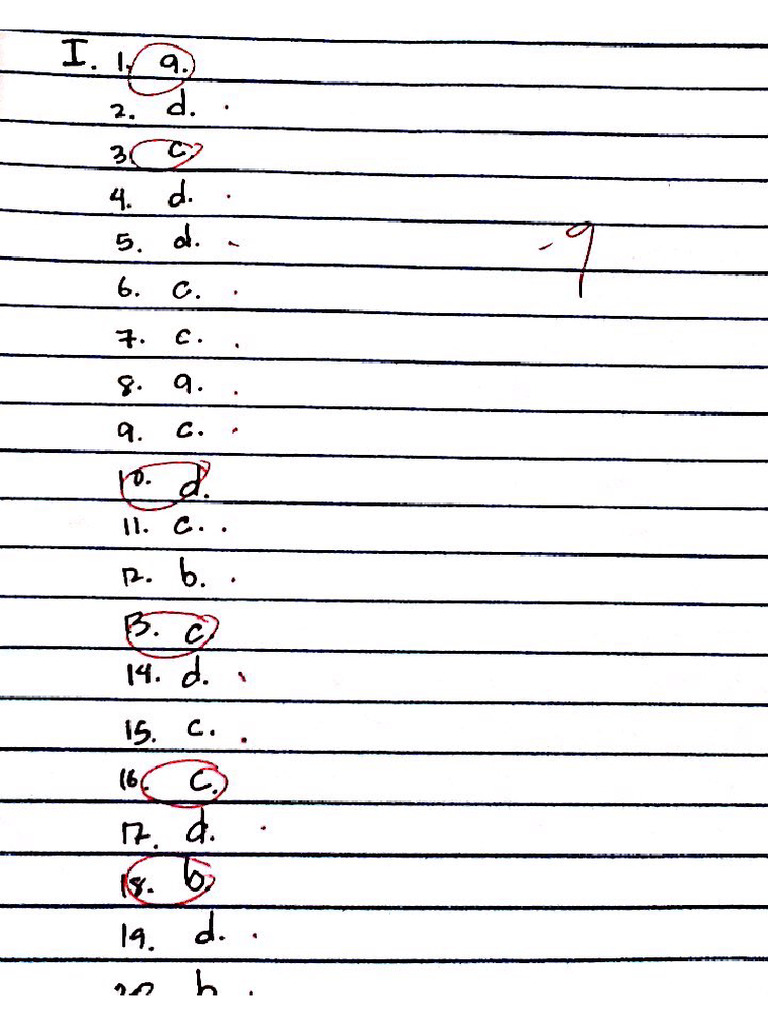 I. 1. a.
2. d.
3. c.
4. d.
5. d.
-9
6. c.
7. c.
8. a.
9. c.
10. d.
11. c.
12. b.
13. c.
14. d.
15. c.
16. c.
17. d.
18. b.
19. d.
20 b.